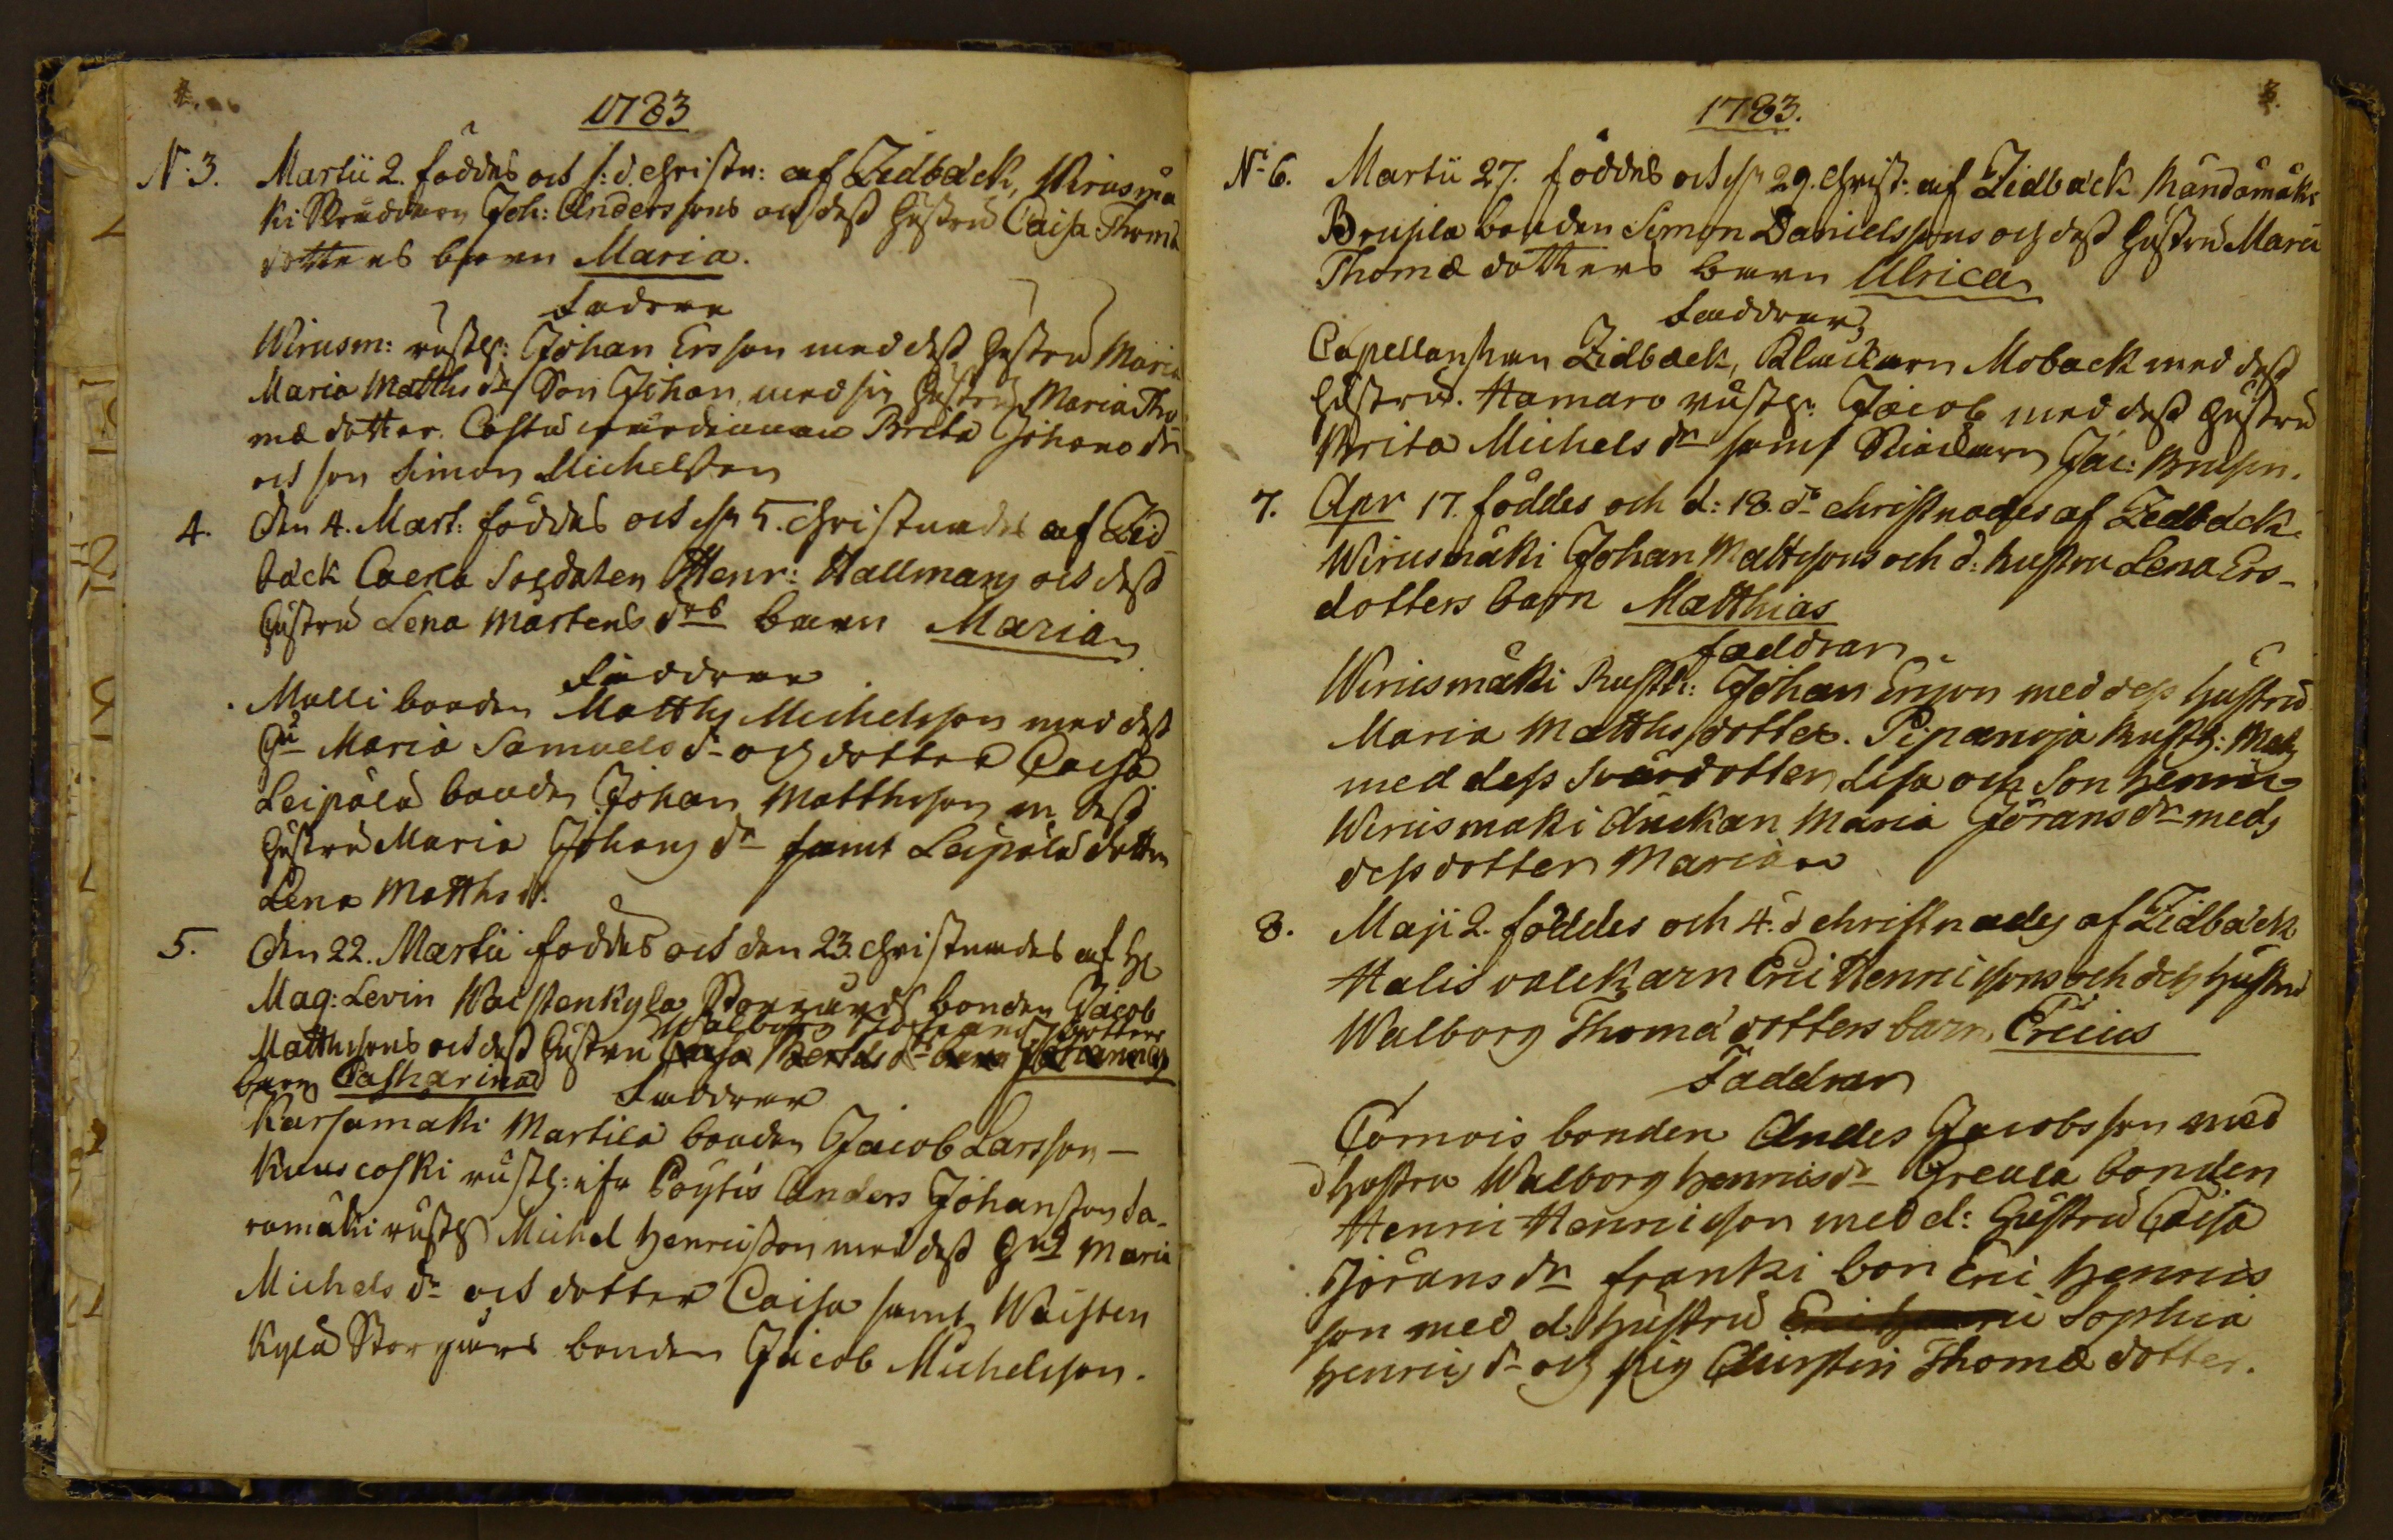 1783
N:3. Martii 2. föddes och s: d. christn: af Zidbäck, Wirusmä
ki Skräddarn Joh: Anderssons och dess hustru Caisa Thomæ
dotters barn Maria.
Faddrar
Wirusm: rusth: Johan Ersson med dess hustru Maria
Maria Matths dr Son Johan med sin hustru Maria Tho
mæ dotter. Brita Johans dr
och son Simon Michelsson
4. Den 4. Mart: föddes och 5. christnades af Zid
bäck Caexla Soldaten Henr: Hallmans och dess
hustru Lena Mårtens drs barn Maria
Faddrar
Malli bonden Matths Michelsson med dess
hu Maria Samuels dr och dotter Caisa
Leipälä bonden Johan Matthsson m. dess
hustru Maria Johans dr samt Leipälä dottren
Lena Matths dr.
5. Den 22. Martii föddes och den 23. christnades af H
Mag: Levin Waistenkylä Storgårds bonden Jacob
Walborg Johans dotters
Matthssons och dess hustru Caisa Bertils dr barn Johannes
barn Catharina
Faddrar
Karsamäki Martila bonden Jacob Larsson —
Kuuscoski rusth: ifr Pöytis Anders Johansson Ja-
ramäki rusth Michel Henricsson med dess hu Maria
Michels dr och dotter Caisa samt Waisten
kylä Storgårds bonden Jacob Michelsson.
8.
1783.
N:6. Martii 27. föddes och 29. christ: af Zidbäck Kandamäki
Brusila bonden Simon Danielssons och dess hustru Maria
Thomæ dotters barn Ulrica
Faddrar,
Capellanskan Zidbäck, Klockarn Moback med dess
hustru. Hamaro rusth: Jacob med dess hustru
Brita Michels dr samt Jac: Brusin.
7. Apr 17. föddes och d: 18. do christnades af Zedbäck.
Wirusmäki Johan Mattssons och d: hustru Lena Ers-
dotters barn Matthias
faddrar
Wirusmäki Rusth: Johan Ersson med dess hustru
Maria Matthsdotter. Pipanoja Rusth: Mats
med dess svärdotter Lisa och Son Henric
Wirusmäki änckan Maria Jörans dr med
dess dotter Maria
8. Maji 2. föddes och 4. d christnades af Zidbäck
Halis valckarn Eric Henricssons och dess hustru
Walborg Thomæ dotters barn. Ericus
Faddrar
Tomois bonden Anders Jacobsson med
d hustru Walborg Henrics dr Greula bonden
Henric Henricsson med d: hustru Caisa
Jörans dr franki bon Eric Henrics
son med d: hustru Eric Henric Sophia
Henrics dr och pig Christin Thomæ dotter.